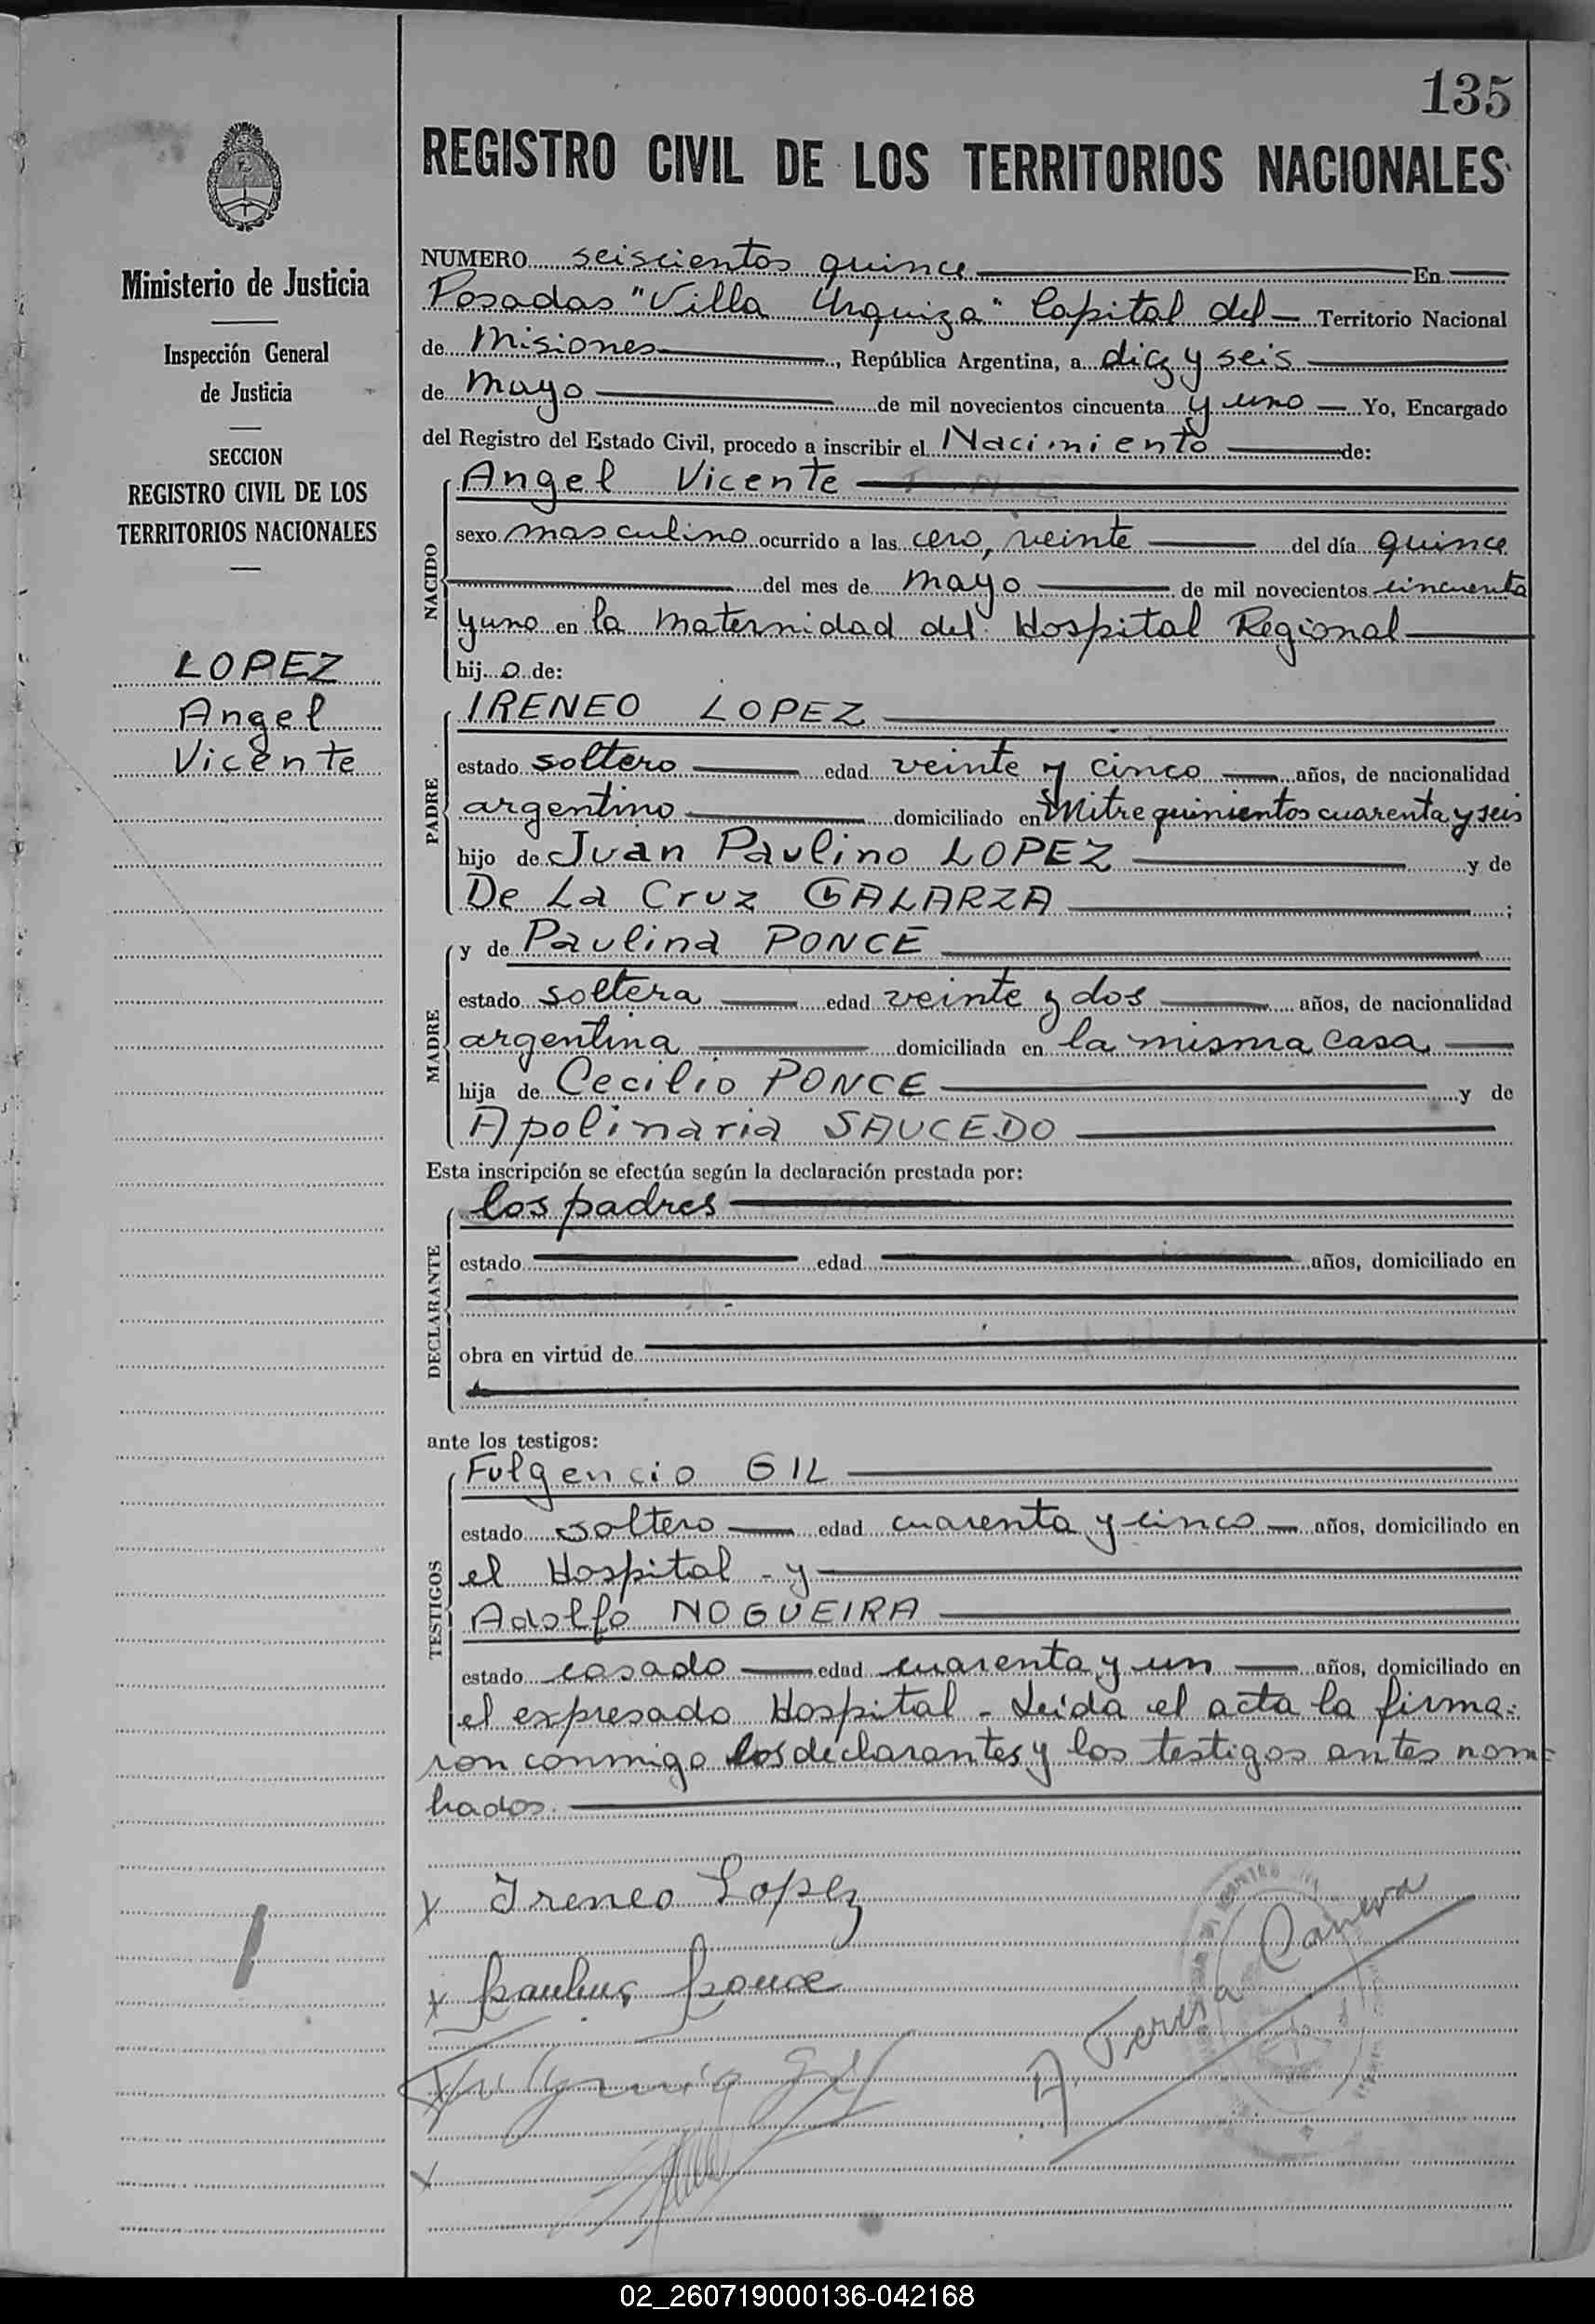 135
REGISTRO CIVIL DE LOS TERRITORIOS NACIONALES
Ministerio de Justicia
Inspección General
de Justicia
SECCION
REGISTRO CIVIL DE LOS
TERRITORIOS NACIONALES
LOPEZ
Angel
Vicente
NUMERO seiscientos quince En
Posadas "Villa Urquiza" Capital del Territorio Nacional
de Misiones, República Argentina, a diez y seis
de mayo de mil novecientos cincuenta y uno Yo, Encargado
del Registro del Estado Civil, procedo a inscribir el Nacimiento de:
NACIDO
Angel Vicente
sexo masculino ocurrido a las cero, veinte del día quince
del mes de mayo de mil novecientos cincuenta
y uno en la maternidad del Hospital Regional
hijo de:
PADRE
IRENEO LOPEZ
estado soltero edad veinte y cinco años, de nacionalidad
argentino domiciliado en Mitre quinientos cuarenta y seis
hijo de Juan Paulino LOPEZ y de
De La Cruz GALARZA;
MADRE
y de Paulina PONCE
estado soltera edad veinte y dos años, de nacionalidad
argentina domiciliada en la misma casa
hija de Cecilio PONCE y de
Apolinaria SAUCEDO
Esta inscripción se efectúa según la declaración prestada por:
DECLARANTE
los padres
estado edad años, domiciliado en
obra en virtud de
ante los testigos:
TESTIGOS
Fulgencio GIL
estado soltero edad cuarenta y cinco años, domiciliado en
el Hospital - y
Adolfo NOGUEIRA
estado casado edad cuarenta y un años, domiciliado en
el expresado Hospital - Leída el acta la firma=
ron conmigo los declarantes y los testigos antes nom=
brados.
x Ireneo Lopez
x Paulina Ponce
x Fulgencio Gil
A. Teresa Canesa
x
02_260719000136-042168